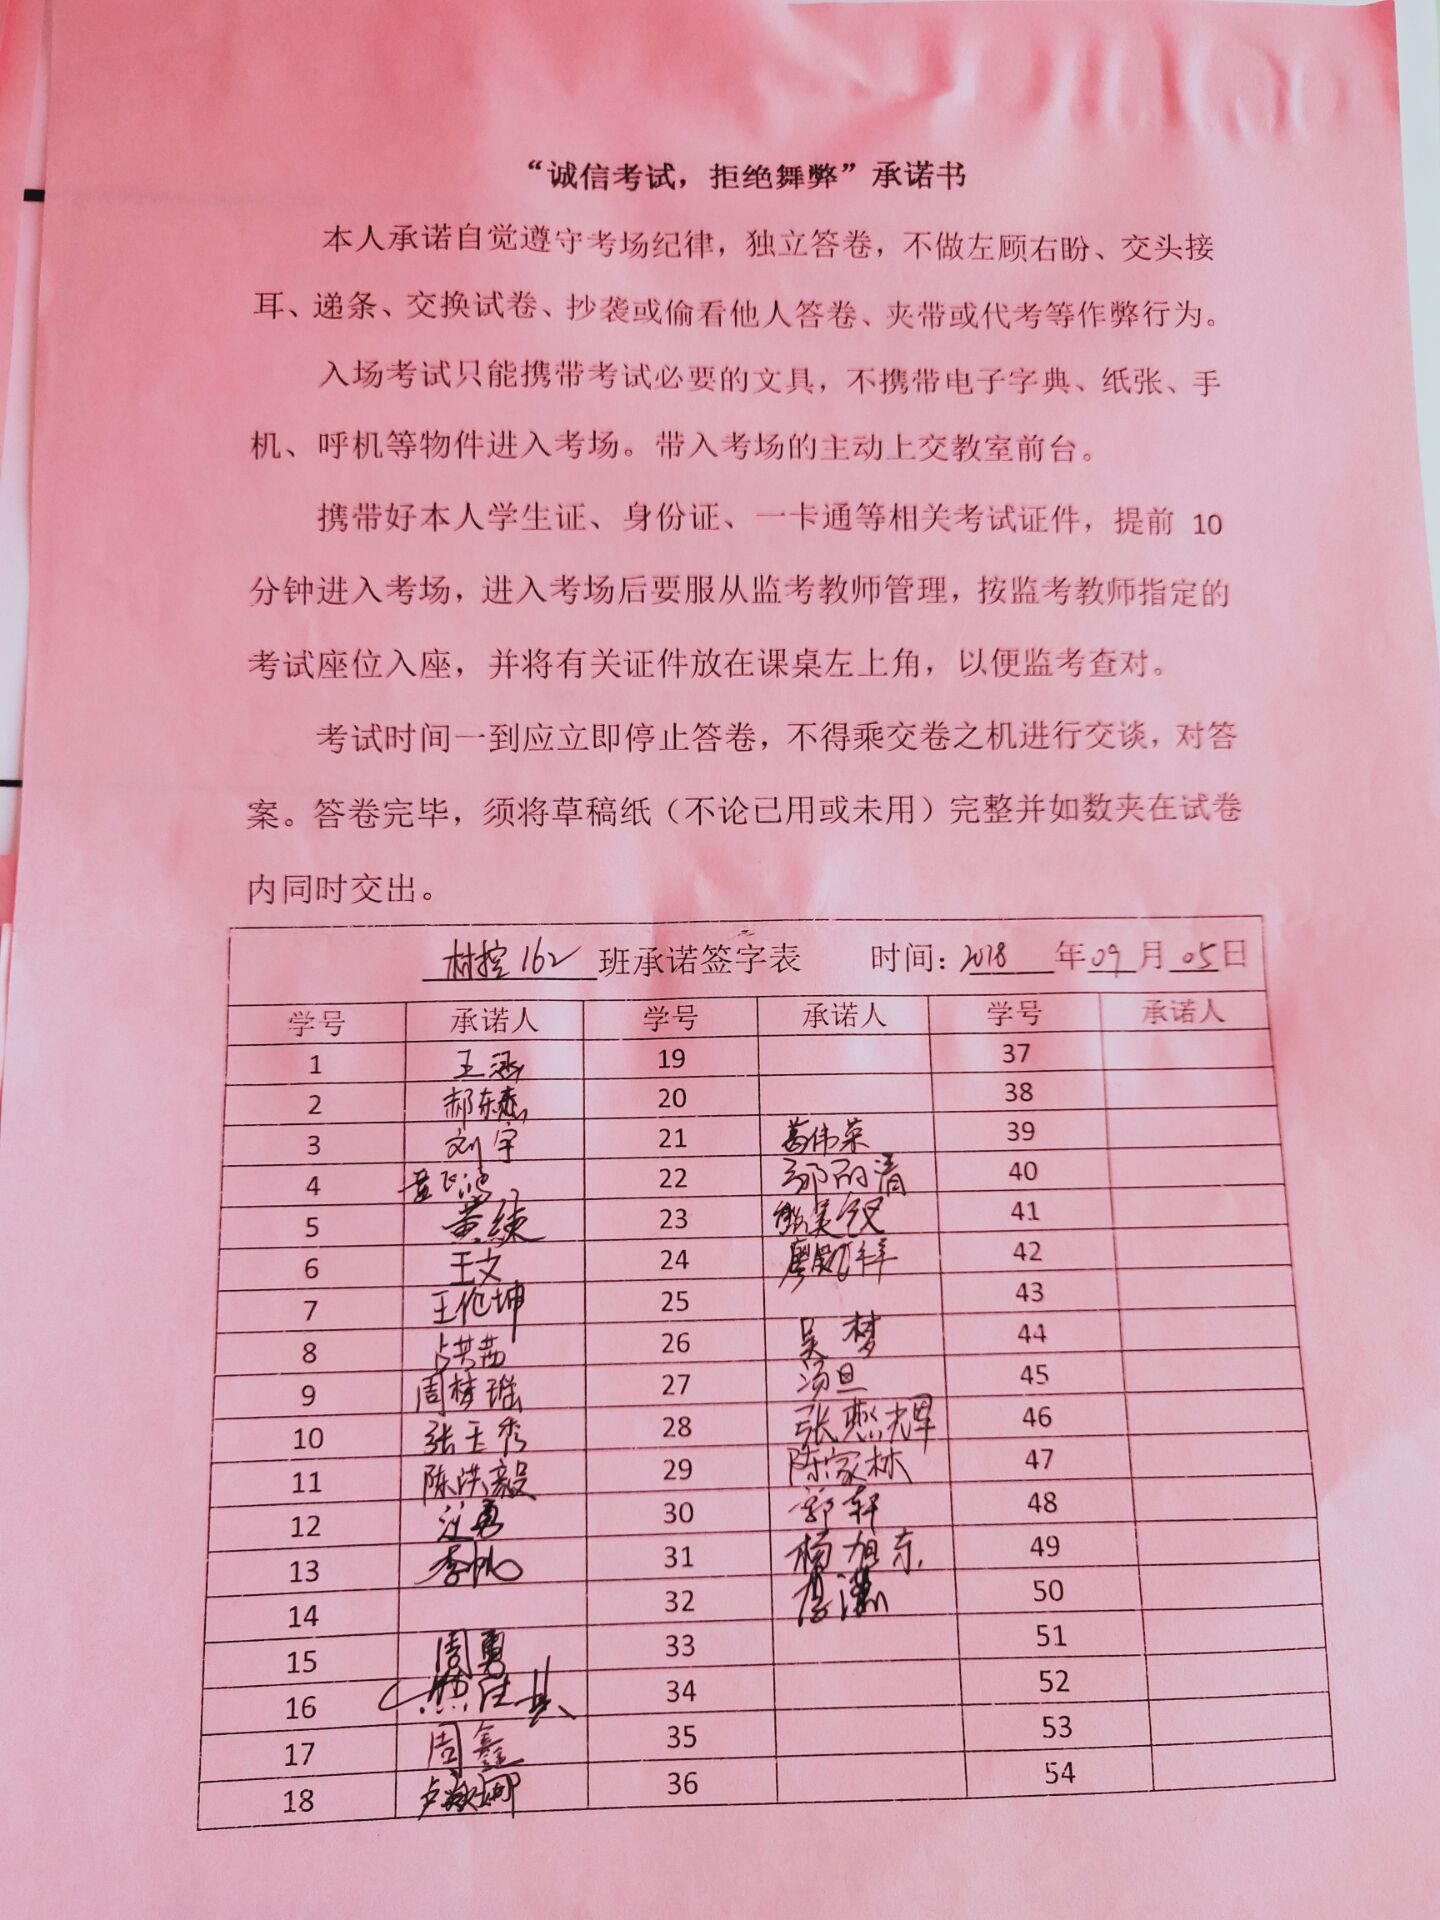 “诚信考试，拒绝舞弊”承诺书
本人承诺自觉遵守考场纪律，独立答卷，不做左顾右盼、交头接
耳、递条、交换试卷、抄袭或偷看他人答卷、夹带或代考等作弊行为。
入场考试只能携带考试必要的文具，不携带电子字典、纸张、手
机、呼机等物件进入考场。带入考场的主动上交教室前台。
携带好本人学生证、身份证、一卡通等相关考试证件，提前 10
分钟进入考场，进入考场后要服从监考教师管理，按监考教师指定的
考试座位入座，并将有关证件放在课桌左上角，以便监考查对。
考试时间一到应立即停止答卷，不得乘交卷之机进行交谈，对答
案。答卷完毕，须将草稿纸（不论已用或未用）完整并如数夹在试卷
内同时交出。
材控162 班承诺签字表 时间：2018 年 09 月 05 日
学号 承诺人 学号 承诺人 学号 承诺人
1 王涵 19 37
2 郝东杰 20 38
3 刘宇 21 葛伟荣 39
4 22 40
5 黄绫 23 41
6 王文 24 廖凯祥 42
7 王伦坤 25 43
8 占洪茜 26 吴梦 44
9 周梦瑶 27 汤旦 45
10 张玉秀 28 张燕辉 46
11 陈洪毅 29 陈家林 47
12 汪勇 30 郭轩 48
13 李帆 31 杨旭东 49
14 32 50
15 周勇 33 51
16 34 52
17 周鑫 35 53
18 卢 36 54